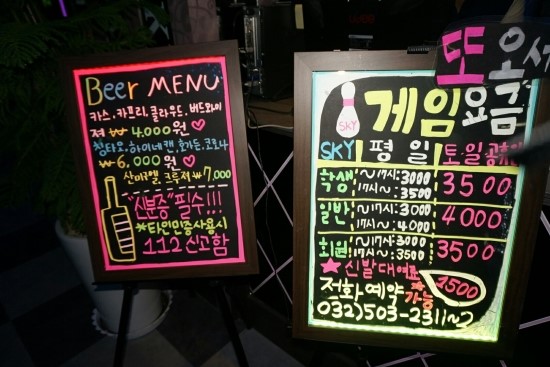 Beer MENU
카스, 카프리, 클라우드, 버드와이
젹 ₩ 4,000원 ♡
칭타오, 하이네켄, 호가든, 코로나
₩6,000원 ♡
산미구엘, 크루져 ₩7,000
"신분증" 필수!!!
*타인민증사용시
112 신고함
또 오셔
SKY
게임요금
SKY 평일 토·일 공휴일
학생 ~17시:3000 3500
17시~:3500
일반 ~17시:3000 4000
17시~:4000
회원 ~17시:3000 3500
17시~:3500
★신발대여료 1500
전화예약 가능
032)503-2311~2